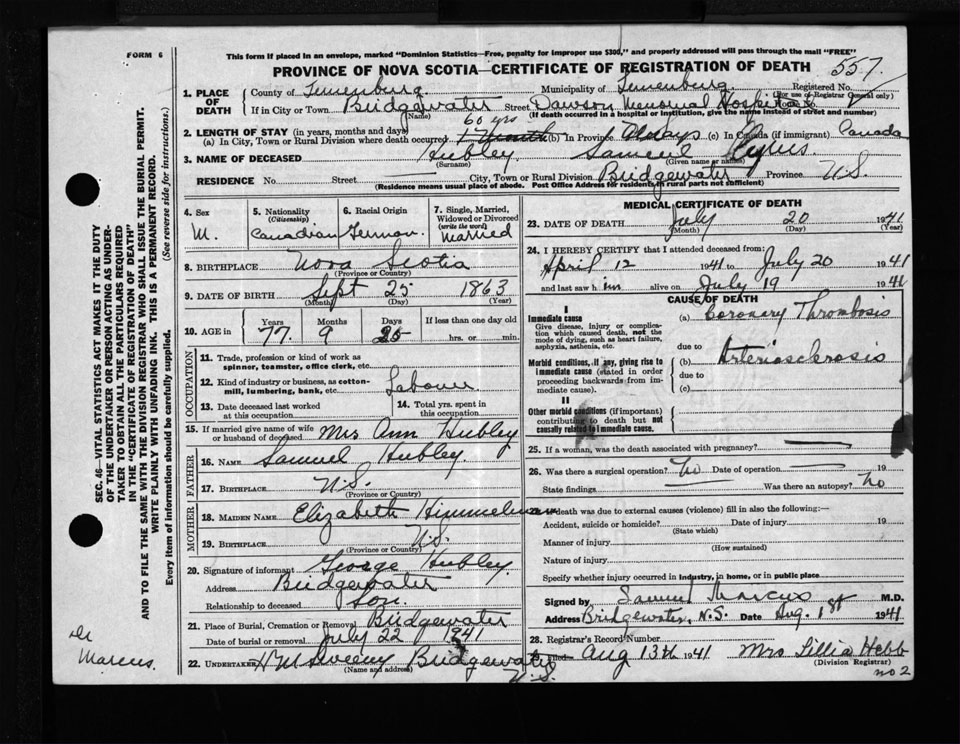 FORM 6
This form if placed in an envelope, marked "Dominion Statistics—Free, penalty for improper use $300," and properly addressed will pass through the mail "FREE"
PROVINCE OF NOVA SCOTIA—CERTIFICATE OF REGISTRATION OF DEATH
557
1. PLACE OF DEATH
County of Lunenburg Municipality of Lunenburg Registered No.
(For use of Registrar General only)
If in City or Town Bridgewater Street Dawson Memorial Hospital
(Name) (If death occurred in hospital or institution, give the name instead of street and number)
60 yrs
2. LENGTH OF STAY (in years, months and days)
(a) In City, Town or Rural Division where death occurred 1 month (b) In Province Always (c) In Canada (if immigrant) Canada
3. NAME OF DECEASED Hubley Samuel Cyrus
(Surname) (Given name or names)
RESIDENCE No. Street City, Town or Rural Division Bridgewater Province N.S.
(Residence means usual place of abode. Post Office Address for residents in rural parts not sufficient)
4. Sex M.
5. Nationality (Citizenship) Canadian
6. Racial Origin German
7. Single, Married, Widowed or Divorced (write the word) Married
8. BIRTHPLACE Nova Scotia
(Province or Country)
9. DATE OF BIRTH Sept 25 1863
(Month) (Day) (Year)
10. AGE in Years 77 Months 9 Days 25 If less than one day old hrs. or min.
OCCUPATION
11. Trade, profession or kind of work as spinner, teamster, office clerk, etc.
12. Kind of industry or business, as cotton-mill, lumbering, bank, etc. Labourer
13. Date deceased last worked at this occupation
14. Total yrs. spent in this occupation
15. If married give name of wife or husband of deceased Mrs Ann Hubley
FATHER
16. NAME Samuel Hubley.
17. BIRTHPLACE N.S.
(Province or Country)
MOTHER
18. MAIDEN NAME Elizabeth Himmelman
19. BIRTHPLACE N.S.
(Province or Country)
20. Signature of informant George Hubley.
Address Bridgewater
Relationship to deceased Son.
21. Place of Burial, Cremation or Removal Bridgewater
Date of burial or removal July 22 1941
22. UNDERTAKER H M Sweeny Bridgewater
(Name and address) N.S.
MEDICAL CERTIFICATE OF DEATH
23. DATE OF DEATH July 20 1941
(Month) (Day) (Year)
24. I HEREBY CERTIFY that I attended deceased from:
April 12 1941 to July 20 1941
and last saw him alive on July 19 1941
CAUSE OF DEATH
I
Immediate cause
Give disease, injury or complication which caused death, not the mode of dying, such as heart failure, asphyxia, asthenia, etc.
(a) Coronary Thrombosis
due to
Morbid conditions, if any, giving rise to immediate cause (stated in order proceeding backwards from immediate cause).
(b) Arteriosclerosis
due to
(c)
II
Other morbid conditions (if important) contributing to death but not causally related to immediate cause.
25. If a woman, was the death associated with pregnancy?
26. Was there a surgical operation? No Date of operation 19
State findings Was there an autopsy? No
death was due to external causes (violence) fill in also the following:—
Accident, suicide or homicide? Date of injury 19
(State which)
Manner of injury
(How sustained)
Nature of injury
Specify whether injury occurred in industry, in home, or in public place
Signed by Samuel Marcus M.D.
Address Bridgewater, N.S. Date Aug. 1st 1941
28. Registrar's Record Number
Filed Aug 13th 1941 Mrs Lillia Hebb
(Division Registrar)
no 2
SEC. 46—VITAL STATISTICS ACT MAKES IT THE DUTY
OF THE UNDERTAKER OR PERSON ACTING AS UNDER-
TAKER TO OBTAIN ALL THE PARTICULARS REQUIRED
IN THE "CERTIFICATE OF REGISTRATION OF DEATH"
AND TO FILE THE SAME WITH THE DIVISION REGISTRAR WHO SHALL ISSUE THE BURIAL PERMIT.
WRITE PLAINLY WITH UNFADING INK. THIS IS A PERMANENT RECORD.
Every item of information should be carefully supplied. (See reverse side for instructions.)
Dr
Marcus.